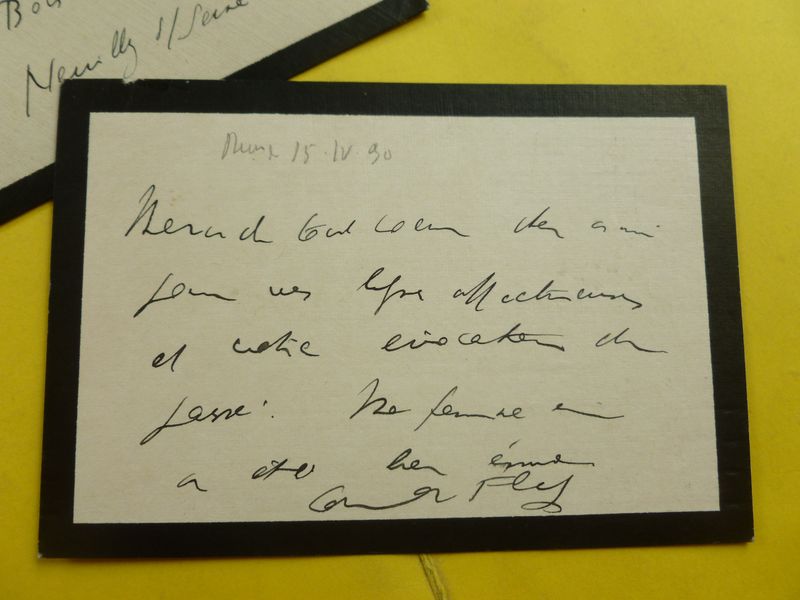 Bois
Neuilly s/ Seine
15.IV.90
Merci de tout coeur cher ami
pour vos lignes affectueuses
et votre évocation du
passé. Ma femme en
a été bien émue